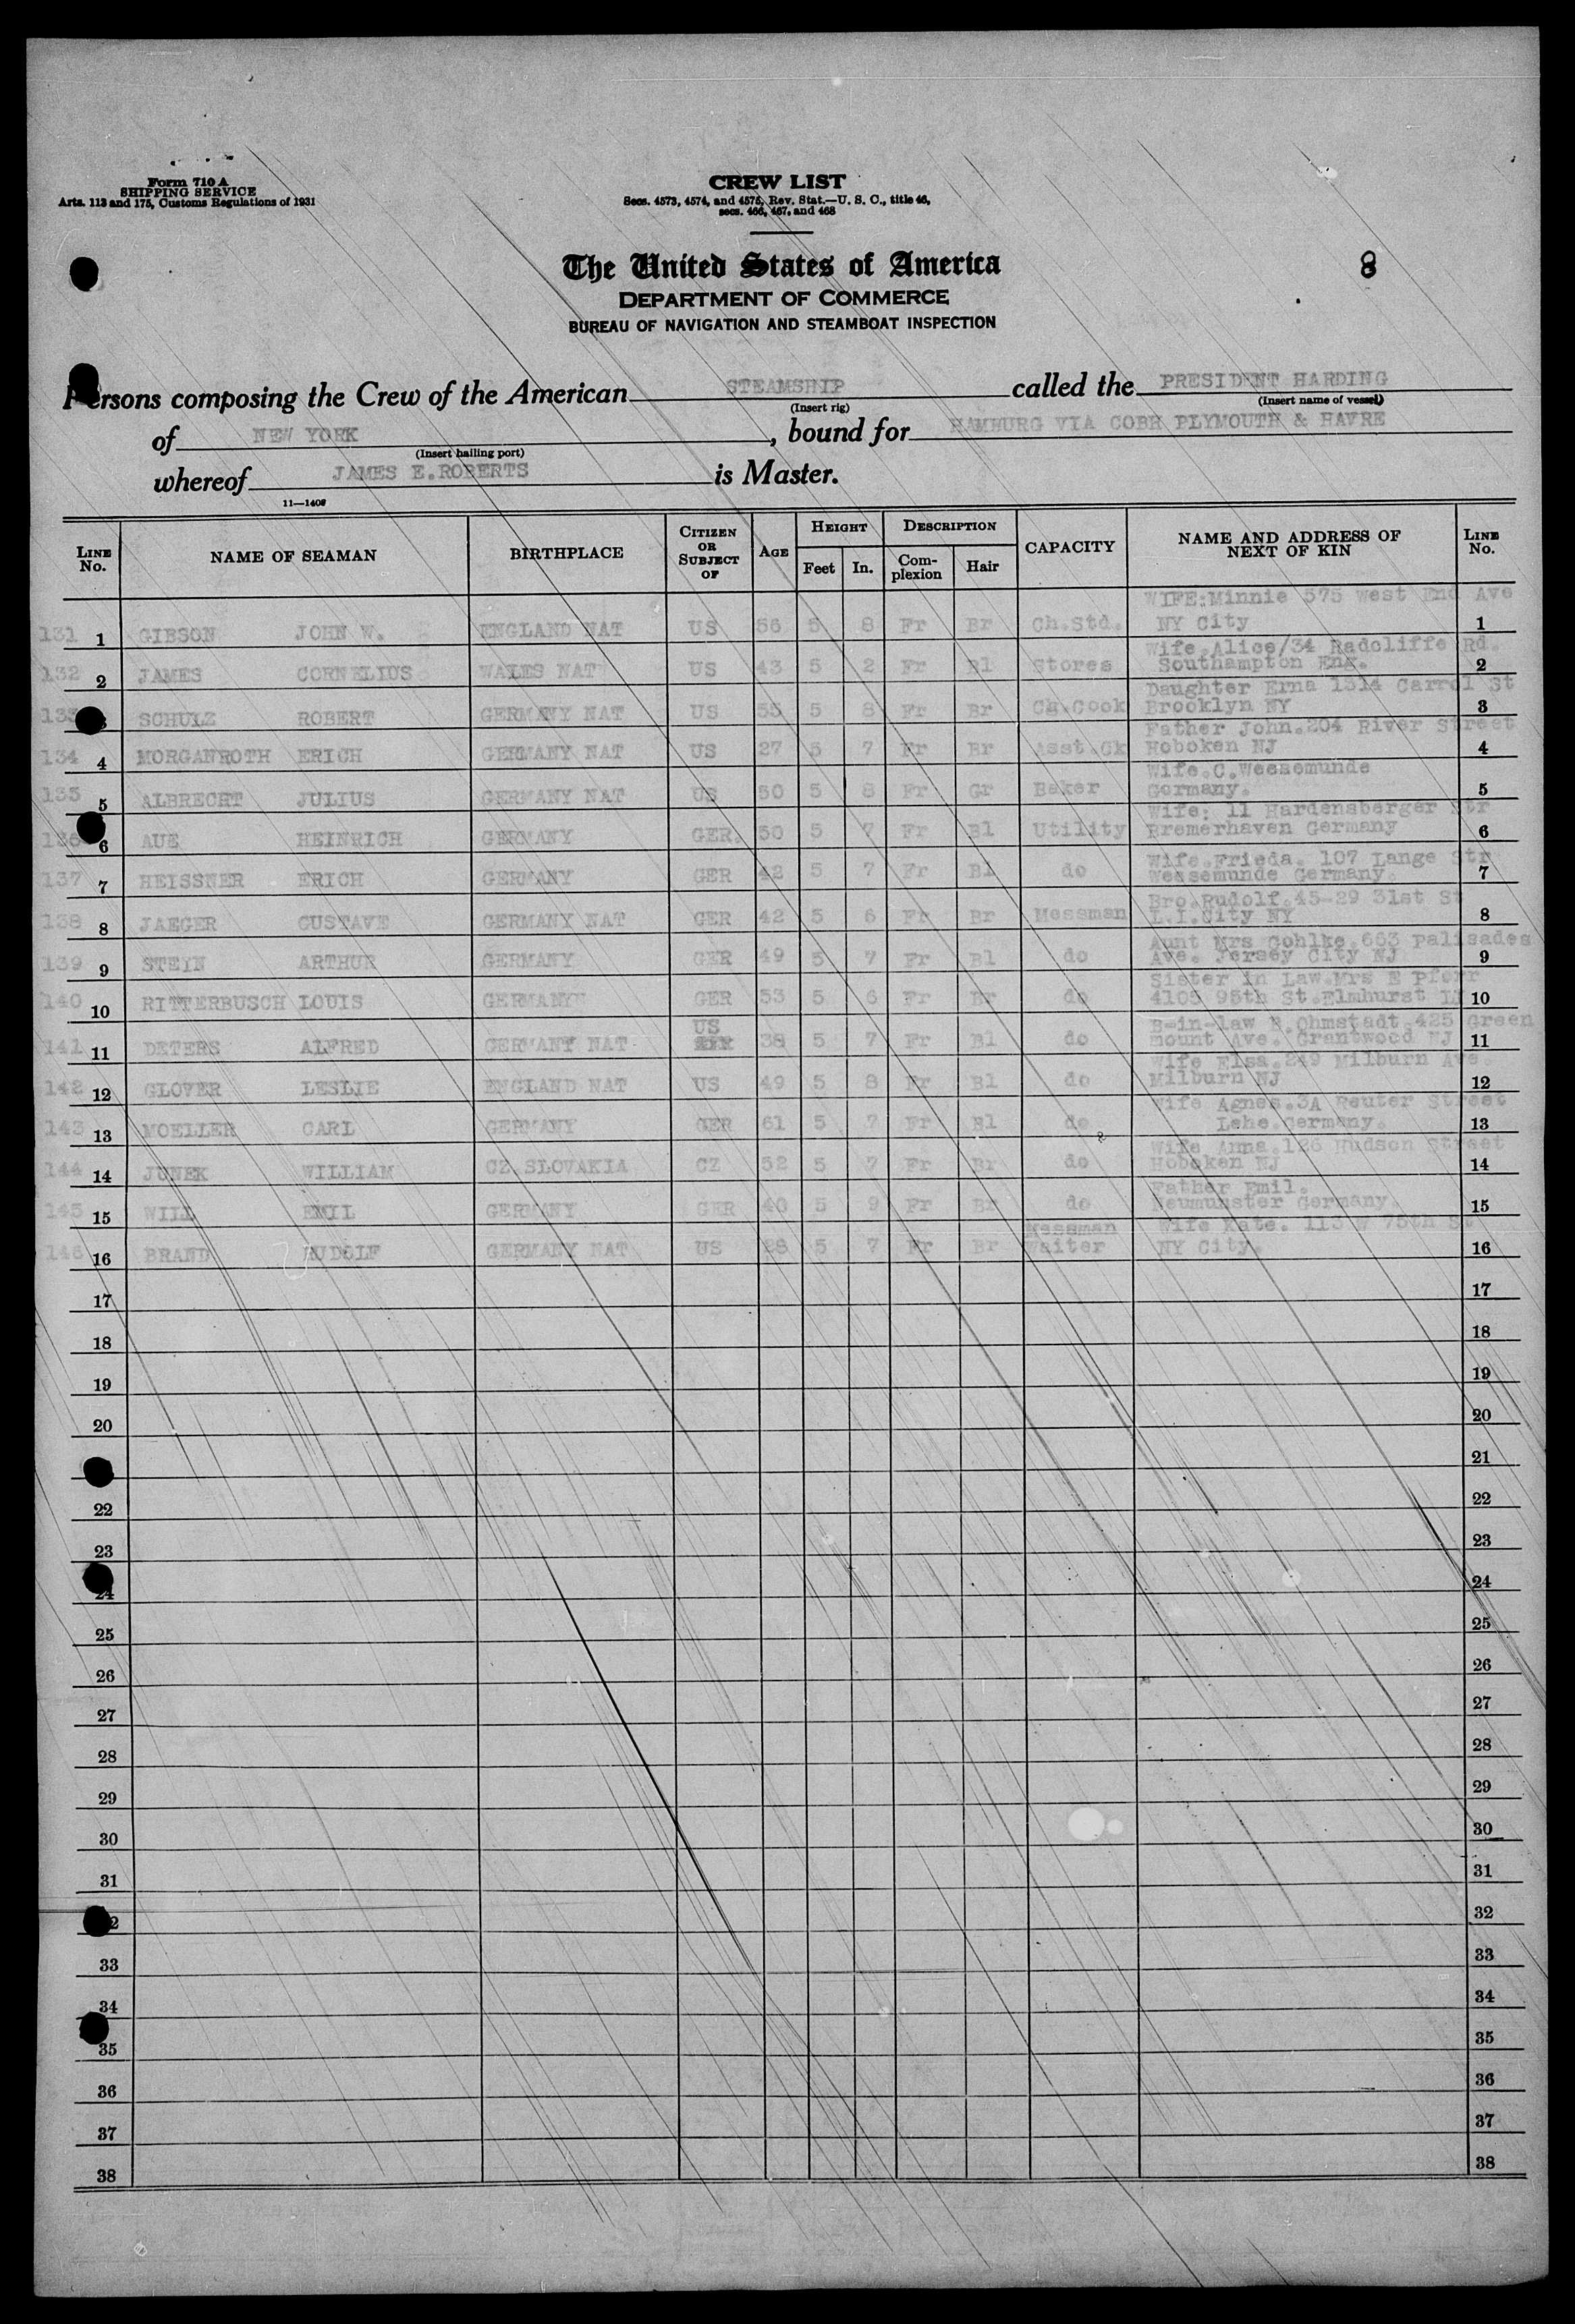 Form 710 A
SHIPPING SERVICE
Arts. 113 and 175, Customs Regulations of 1931
CREW LIST
Secs. 4573, 4574, and 4575, Rev. Stat.—U. S. C., title 46,
secs. 466, 467, and 468
The United States of America
8
DEPARTMENT OF COMMERCE
BUREAU OF NAVIGATION AND STEAMBOAT INSPECTION
Persons composing the Crew of the American STEAMSHIP called the PRESIDENT HARDING
(Insert rig) (Insert name of vessel)
of NEW YORK, bound for HAMBURG VIA COBH PLYMOUTH & HAVRE
(Insert hailing port)
whereof JAMES E.ROBERTS is Master.
11—1408
LINE No. NAME OF SEAMAN BIRTHPLACE CITIZEN OR SUBJECT OF AGE HEIGHT Feet In. DESCRIPTION Complexion Hair CAPACITY NAME AND ADDRESS OF NEXT OF KIN LINE No.
WIFE:Minnie 575 West End Ave
131 1 GIBSON JOHN W. ENGLAND NAT US 56 5 8 Fr Br Ch.Std. NY City 1
Wife.Alice/34 Radcliffe Rd.
132 2 JAMES CORNELIUS WALES NAT US 43 5 2 Fr Bl Stores Southampton Eng. 2
Daughter Erna 1314 Carrol St
133 SCHULZ ROBERT GERMANY NAT US 55 5 8 Fr Br Ch.Cook Brooklyn NY 3
Father John.204 River Street
134 4 MORGANROTH ERICH GERMANY NAT US 27 5 7 Fr Br Asst.Ck Hoboken NJ 4
Wife.C.Weesemunde
135 5 ALBRECHT JULIUS GERMANY NAT US 50 5 8 Fr Gr Baker Germany. 5
Wife: 11 Hardensberger Str
136 6 AUE HEINRICH GERMANY GER. 50 5 7 Fr Bl Utility Bremerhaven Germany 6
Wife.Frieda. 107 Lange Str
137 7 HEISSNER ERICH GERMANY GER 42 5 7 Fr Bl do Weesemunde Germany. 7
Bro.Rudolf.45-29 31st St
138 8 JAEGER GUSTAVE GERMANY NAT GER 42 5 6 Fr Br Messman L.I.City NY 8
Aunt Mrs Gohlke.663 Palisades
139 9 STEIN ARTHUR GERMANY GER 49 5 7 Fr Bl do Ave. Jersey City NJ 9
Sister in Law.Mrs E Pforr
140 10 RITTERBUSCH LOUIS GERMANY GER 53 5 6 Fr Br do 4105 95th St.Elmhurst LI 10
US B-in-law Ohmstadt.425 Green
141 11 DETERS ALFRED GERMANY NAT 38 5 7 Fr Bl do mount Ave. Grantwood NJ 11
Wife Elsa.249 Milburn Ave
142 12 GLOVER LESLIE ENGLAND NAT US 49 5 8 Fr Bl do Milburn NJ 12
Wife Agnes.3A Reuter Street
143 13 MOELLER CARL GERMANY GER 61 5 7 Fr Bl do Lehe.Germany. 13
Wife Anna.126 Hudson Street
144 14 JUNEK WILLIAM CZ.SLOVAKIA CZ 52 5 7 Fr Br do Hoboken NJ 14
Father Emil.
145 15 WILL EMIL GERMANY GER 40 5 9 Fr Br do Neumunster Germany 15
Messman Wife Kate. 113 W 75th St
146 16 BRAND RUDOLF GERMANY NAT US 28 5 7 Fr Br Waiter NY City. 16
17 17
18 18
19 19
20 20
21
22 22
23 23
24 24
25 25
26 26
27 27
28 28
29 29
30 30
31 31
32 32
33 33
34 34
35 35
36 36
37 37
38 38